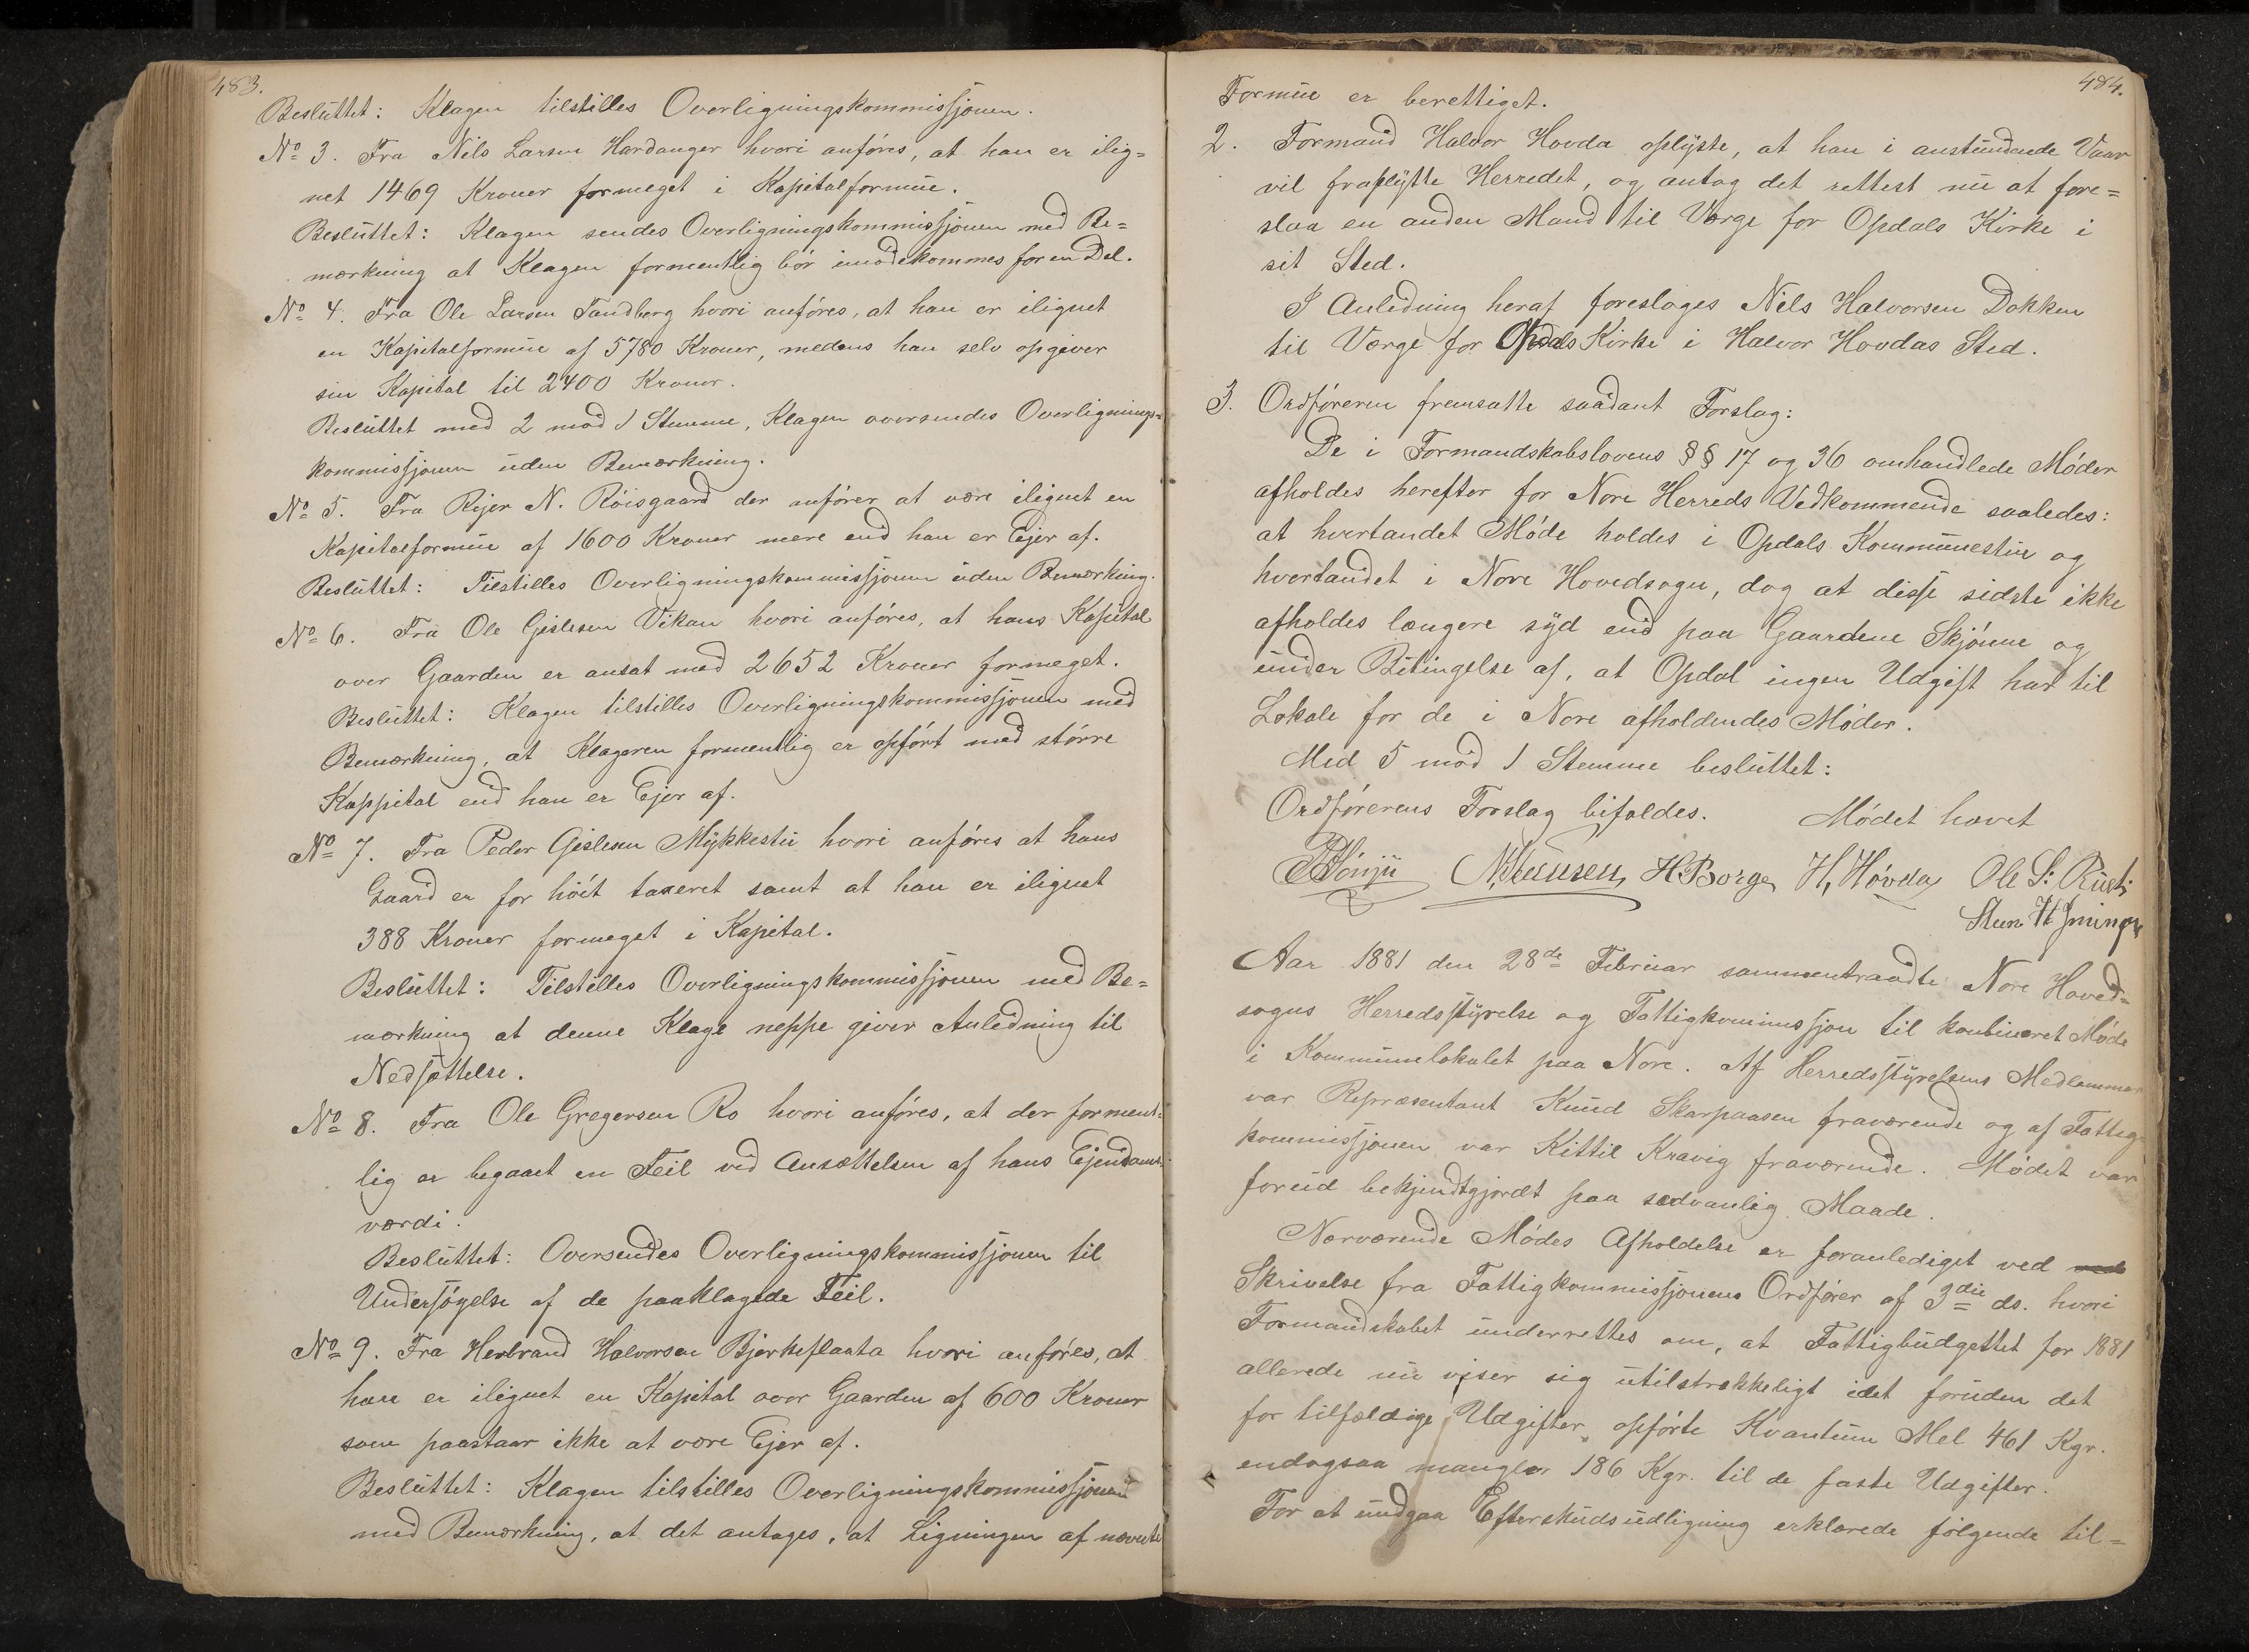 483.
Besluttet: Klagen tilstilles Overligningskommissjonen.
No 3. Fra Nils Larsen Hardanger hvori anføres, at han er ilig=
net 1469 Kroner formeget i Kapitalformue.
Besluttet: Klagen sendes Overligningskommissjonen med Be=
mærkning at Klagen formentlig bør imødekommes for en Del.
No 4. Fra Ole Larsen Tandberg hvori anføres, at han er ilignet
en Kapitalformue af 5780 Kroner, medens han selv opgiver
sin Kapital til 2400 Kroner.
Besluttet med 2 mod 1 Stemme, Klagen oversendes Overlignings=
kommissjonen uden Bemærkning.
No 5. Fra Rejer N. Röisgaard der anfører at være ilignet en
Kapitalformue af 1600 Kroner mere end han er Ejer af.
Besluttet: Tilstilles Overligningskommissjonen uden Bemærkning.
No 6. Fra Ole Gislesen Vikan hvori anføres, at hans Kapital
over Gaarden er ansat med 2652 Kroner formeget.
Besluttet: Klagen tilstilles Overligningskommissjonen med
Bemærkning, at Klageren formentlig er opført med større
Kappital end han er Ejer af.
No 7. Fra Peder Gislesen Mykkestu hvori anføres at hans
Gaard er for høit taxeret samt at han er ilignet
388 Kroner formeget i Kapital.
Besluttet: Tilstilles Overligningskommissjonen med Be=
mærkning at denne Klage neppe giver Anledning til
Nedsættelse.
No 8. Fra Ole Gregersen Ro hvori anføres, at der forment=
lig er begaaet en Feil ved Ansættelsen af hans Ejendoms=
værdi.
Besluttet: Oversendes Overligningskommissjonen til
Undersøgelse af de paaklagede Feil.
No 9. Fra Herbrand Halvorsen Bjerkeflaata hvori anføres, at
han er ilignet en Kapital over Gaarden af 600 Kroner
som paastaar ikke at være Ejer af.
Besluttet: Klagen tilstilles Overligningskommissjonen
med Bemærkning, at det antages, at Ligningen af nævnte
484.
Formue er berettiget.
2. Formand Halvor Hovda oplyste, at han i anstundende Vaar
vil fraflytte Herredet, og antog det rettest nu at fore=
slaa en anden Mand til Værge for Opdals Kirke i
sit Sted.
I Anledning heraf foresloges Nils Halvorsen Dokken
til Værge for Opdals Kirke i Halvor Hovdas Sted.
3. Ordføreren fremsatte saadant Forslag:
De i Formandskabslovens §§ 17 og 36 omhandlede Møder
afholdes herefter for Nore Herreds Vedkommende saaledes:
at hvertandet Møde holdes i Opdals Kommunestue og
hvertandet i Nore Hovedsogn, dog at disse sidste ikke
afholdes længere syd end paa Gaardene Skjønne og
under Betingelse af, at Opdal ingen Udgift har til
Lokale for de i Nore afholdendes Møder.
Med 5 mod 1 Stemme besluttet:
Ordførerens Forslag bifaldes. Mødet hævet
H Borge, H, Hovda Ole S: Rust:
Aar 1881 den 28de Februar sammentraadte Nore Hoved=
sogns Herredsstyrelse og Fattigkommissjon til kombineret Møde
i Kommunelokalet paa Nore. Af Herredsstyrelsens Medlemmer
var Repræsentant Knud Skarpaasen fraværende og af Fattig=
kommissjonen var Kittil Kravig fraværende. Mødet var
forud bekjendtgjordt paa sædvanlig Maade.
Nærværende Mødes Afholdelse er foranlediget ved
Skrivelse fra Fattigkommissjonens Ordfører af 3die ds. hvori
Formandskabet underrettes om, at Fattigbudgettet for 1881
allerede nu viser sig utilstrekkeligt idet foruden det
for tilfældige Udgifter opførte Kvantum Mel 461 Kgr.
endogsaa mangler 186 Kgr. til de faste Udgifter.
For at undgaa Efterskudsudligning erklærede følgende til=